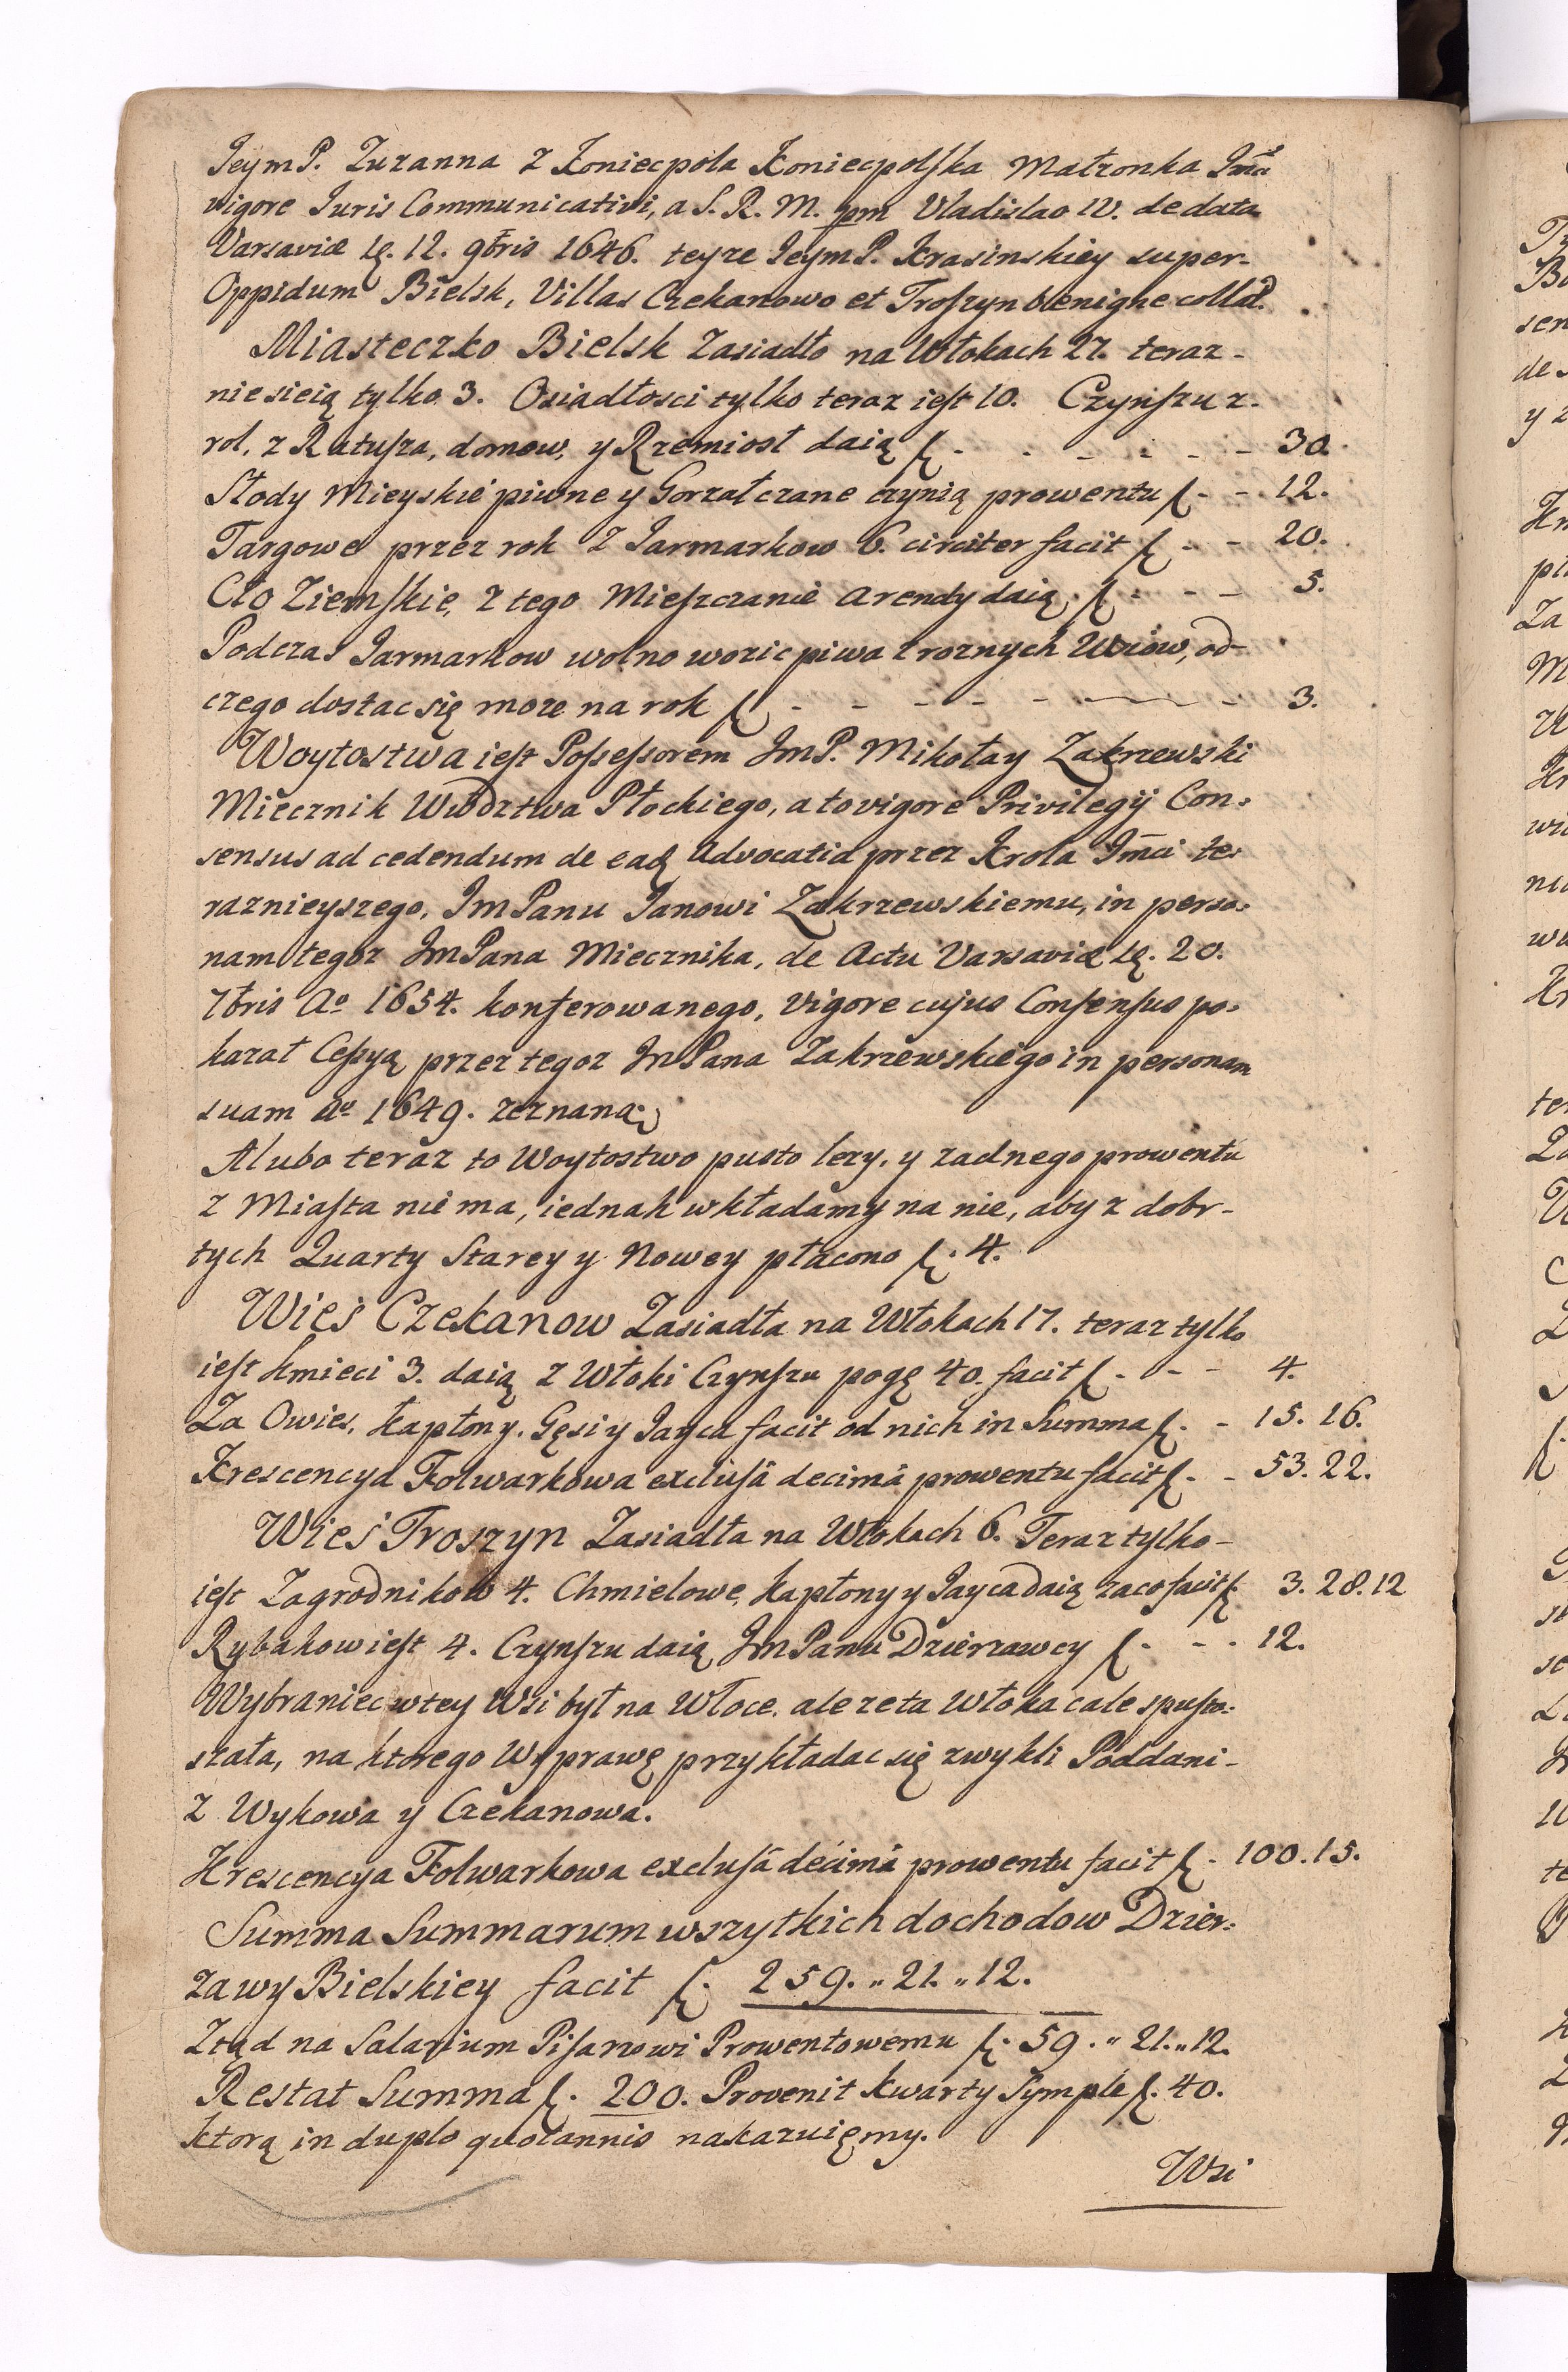 JeymP. Zuzanna z Koniecpola Koniecpolska Małzonka Jmci
vigore Juris Communicativi, a S. R. M. pm Vladislao IV. de data
Varsaviæ d. 12. 9bris 1646. teyze JeymP. Krasinskiey super-
Oppidum Bielsk, Villas Czekanowo et Troszyn benigne collat.
Miasteczko Bielsk Zasiadło na Włokach 27. teraz-
nie sieią tylko 3. Osiadłosci tylko teraz iest 10. Czynszu z-
rol, z Ratusza, domow, y Rzemiosł daią f. - - - - - 30.
Słody Mieyskie piwne y Gorzałczane czynią prowentu f. - - 12.
Targowe przez rok z Jarmarkow 6. circiter facit f. - - 20.
Cło Ziemskie, z tego Mieszczanie Arendy daią f. - - - 5.
Podczas Jarmarkow wolno wozic piwa z roznych Wsiow, od-
czego dostac się moze na rok f. - - - - - - - 3.
Woytostwa iest Possessorem JmP. Mikołay Zakrzewski
Miecznik Wwdztwa Płockiego, a to vigore Privilegij Con-
sensus ad cedendum de ead Advocatia przez Krola Jmci te-
raznieyszego, JmPanu Janowi Zakrzewskiemu, in perso-
nam tegoz JmPana Miecznika, de Actu Varsaviæ d. 20.
7bris Ao 1654. konferowanego, vigore cujus Consensus po-
kazał Cessyą przez tegoz JmPana Zakrzewskiego in personam
suam Ao 1649. zeznaną.
A lubo teraz to Woytostwo pusto lezy, y zadnego prowentu
z Miasta nie ma, iednak wkładamy na nie, aby z dobr-
tych Quarty Starey y Nowey płacono f. 4.
Wieś Czekanow Zasiadła na Włokach 17. teraz tylko
iest kmieci 3. daią z Włoki Czynszu po gę 40. facit f. - - - 4.
Za Owies, kapłony, Gęsi y Jayca facit od nich in Summa f. - 15. 16.
Krescencya Folwarkowa exclusâ decimâ prowentu facit f. - - 53. 22.
Wieś Troszyn Zasiadła na Włokach 6. Teraz tylko-
iest Zagrodnikow 4. Chmielowe, kapłony y Jayca daią za co facit f. 3. 28. 12
Rybakow iest 4. Czynszu daią JmPanu Dzierzawcy f. - - - 12.
Wybraniec w tey Wsi był na Włoce, ale ze ta Włoka cale spusto-
szała, na ktorego Wyprawę przykładac się zwykli Poddani-
z Wykowa y Czekanowa.
Krescencya Folwarkowa exclusâ decimâ prowentu facit f. - 100. 15.
Summa Summarum wszytkich dochodow Dzier-
zawy Bielskiey facit f. 259. " 21. " 12.
Ztąd na Salarium Pisarzowi Prowentowemu f. 59. " 21. " 12.
Restat Summa f. 200. Provenit kwarty Symple f. 40.
ktorą in duplo quotannis nakazuięmy.
Wsi